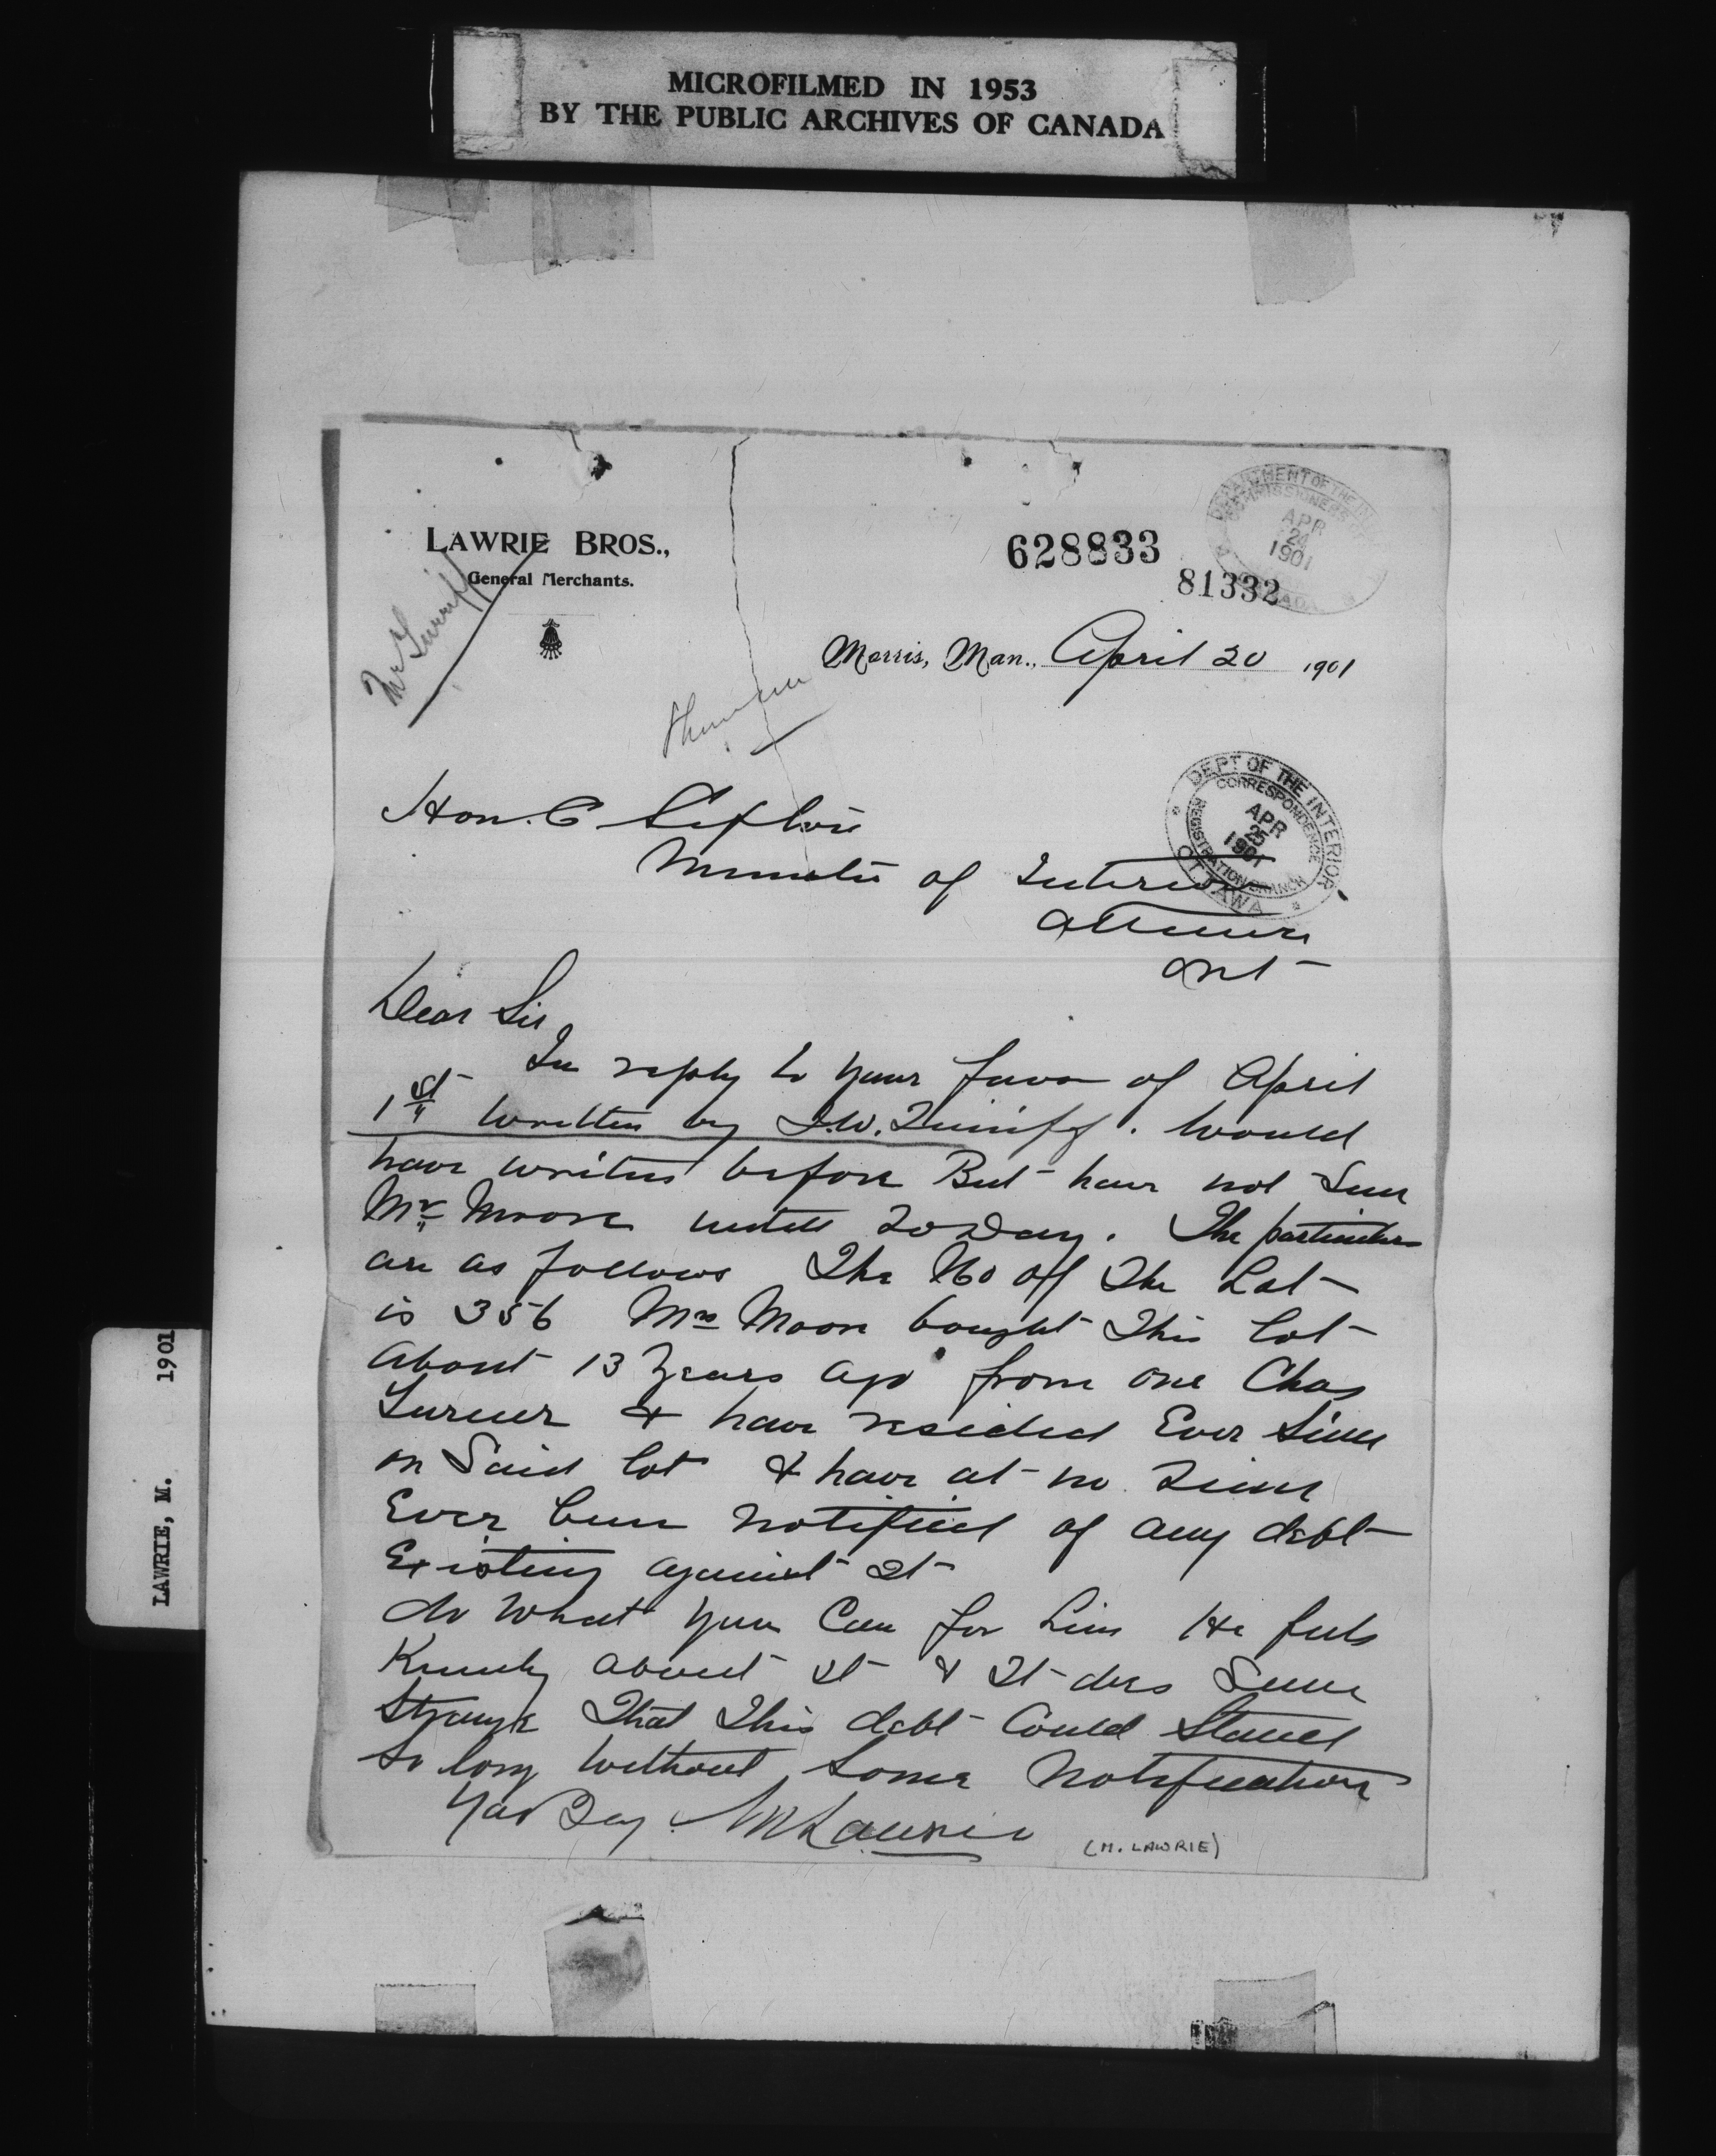 MICROFILMED IN 1953
BY THE PUBLIC ARCHIVES OF CANADA
LAWRIE BROS.,
General Merchants.
628833
DEPARTMENT OF THE
COMMISSIONER
APR
24
1901
81332
Mr Turriff
Morris, Man., April 20 1901
DEPT OF THE INTERIOR
CORRESPONDENCE
REGISTRATION BRANCH
APR
25
1901
OTTAWA
Hon. C Sifton
Minister of Interior
Ottawa
Ont
Dear Sir
In reply to your favor of April
1st written by J.W. Turriff. Would
have writen before But have not Seen
Mr Moore untill To Day. The particulars
are as follows The No off The Lot
is 356 Mrs Moore bought This lot
about 13 Years ago from one Chas
Turner & have resided Ever Since
on Said lot & have at no Time
Ever been notified of any debt
Existing against It
do What you Can for him He feels
Keenly about it & It does Seem
Strange That This debt Could Stand
So long without Some Notification
M Lawrie
(M. LAWRIE)
LAWRIE, M. 1901